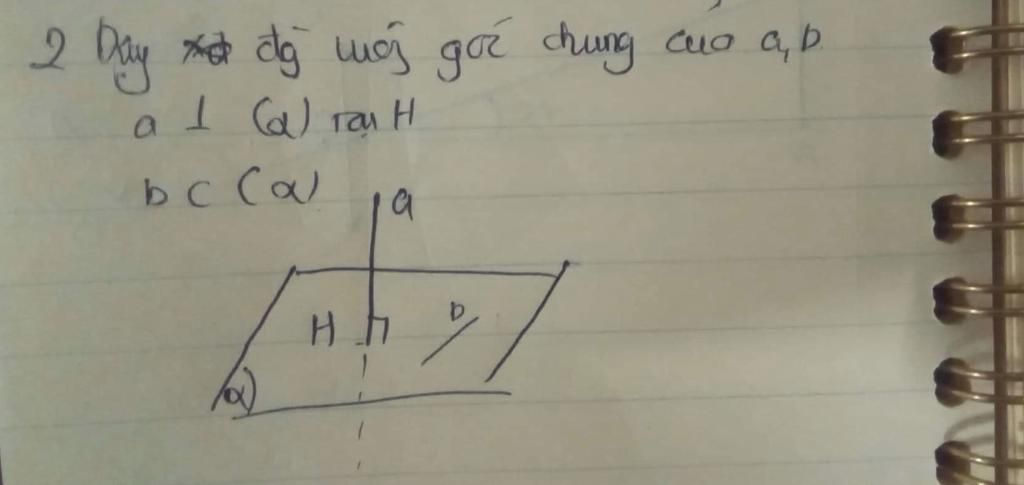 2 Dạy đg vuôg góc chung của a, b
a ⊥ (α) tại H
b ⊂ (α)
a
H
b
α)